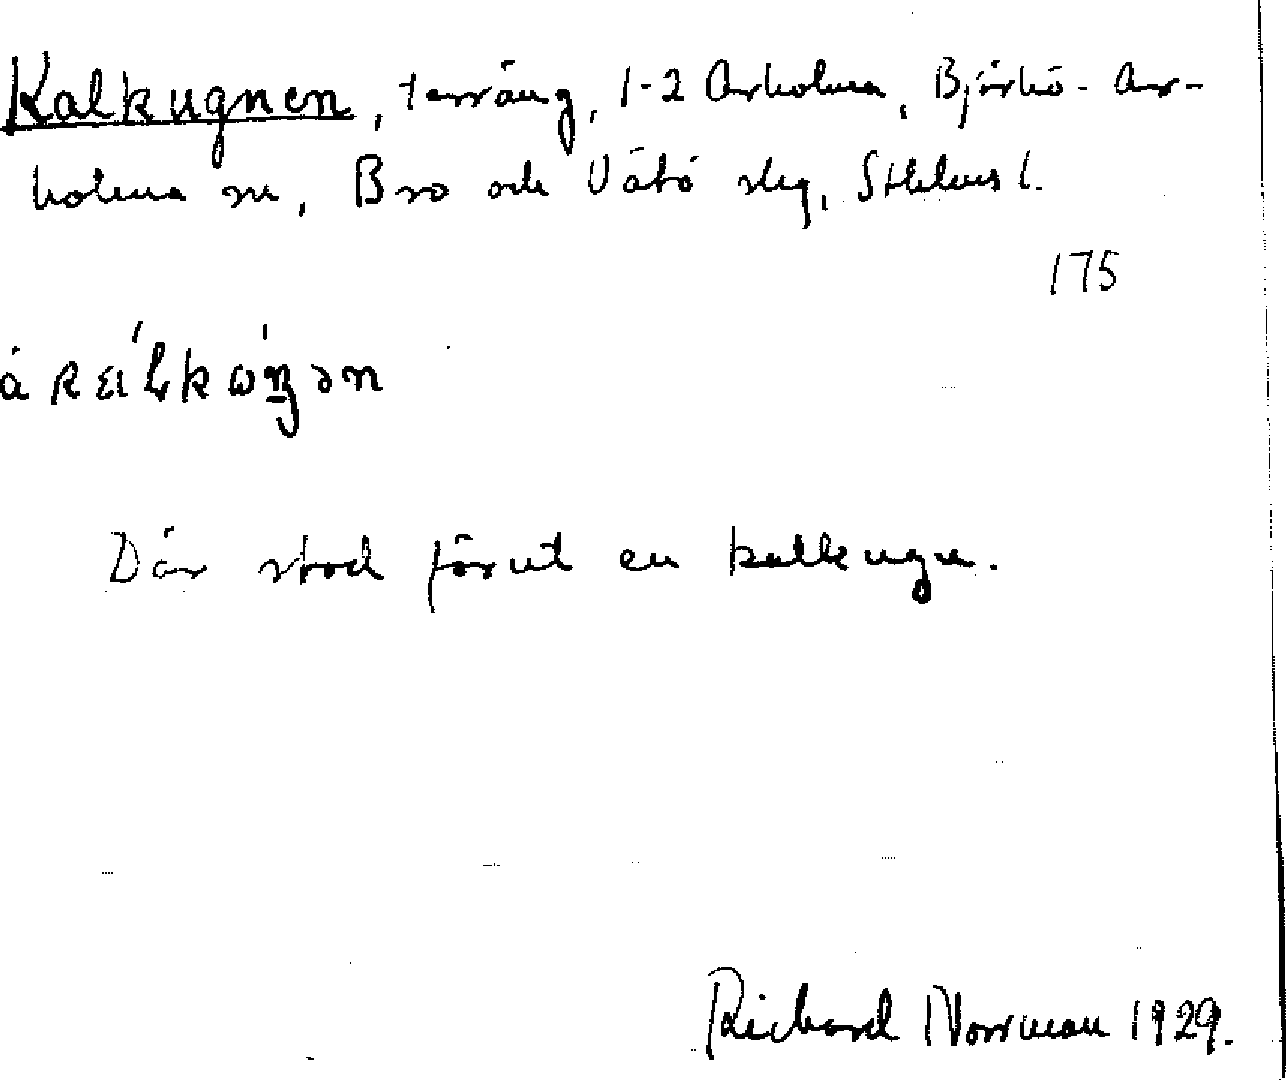 Kalkugnen, terräng, 1-2 Arholma, Björkö-Ar-
holma sn, Bro och Vätö skg, Sthlms l.
175
Där stod förut en kalkugn.
Richard Norrman 1929.